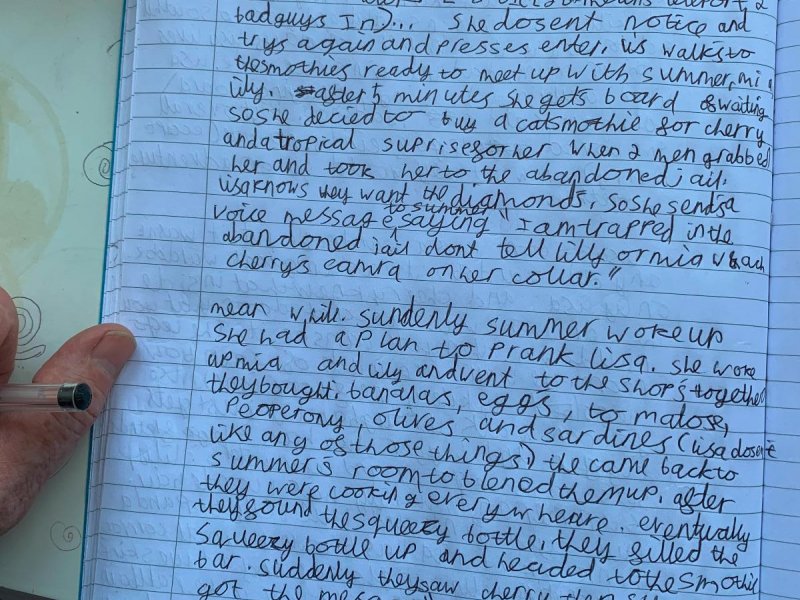 badguys In)... She dosent notice and
trys again and presses enter. lis walks to
thesmothies ready to meet up with summer, mi
lily. after 5 minutes she gets board of waiting
so she decied to buy a catsmothie for cherry
and a tropical suprise for her when 2 men grabbed
her and took her to the abandoned jail.
lisa knows they want the diamonds, so she sends a
voice message to summer saying "I am trapped in the
abandoned jail dont tell lilly or mia
cherry's camra on her collar."
mean while. sundenly summer woke up
She had a plan to prank lisa. she woke
up mia and lily and went to the shop's together
they bought. bananas, eggs, to matoes,
Peoperony, olives and sardines (lisa dosent
like any of those things) the came back to
summer's room to blened them up. after
they were cooking every wheare. eventually
they found the squeezy bottle, they filled the
squeezy bottle up and headed to the smothie
bar. suddenly they saw cherry then
got the